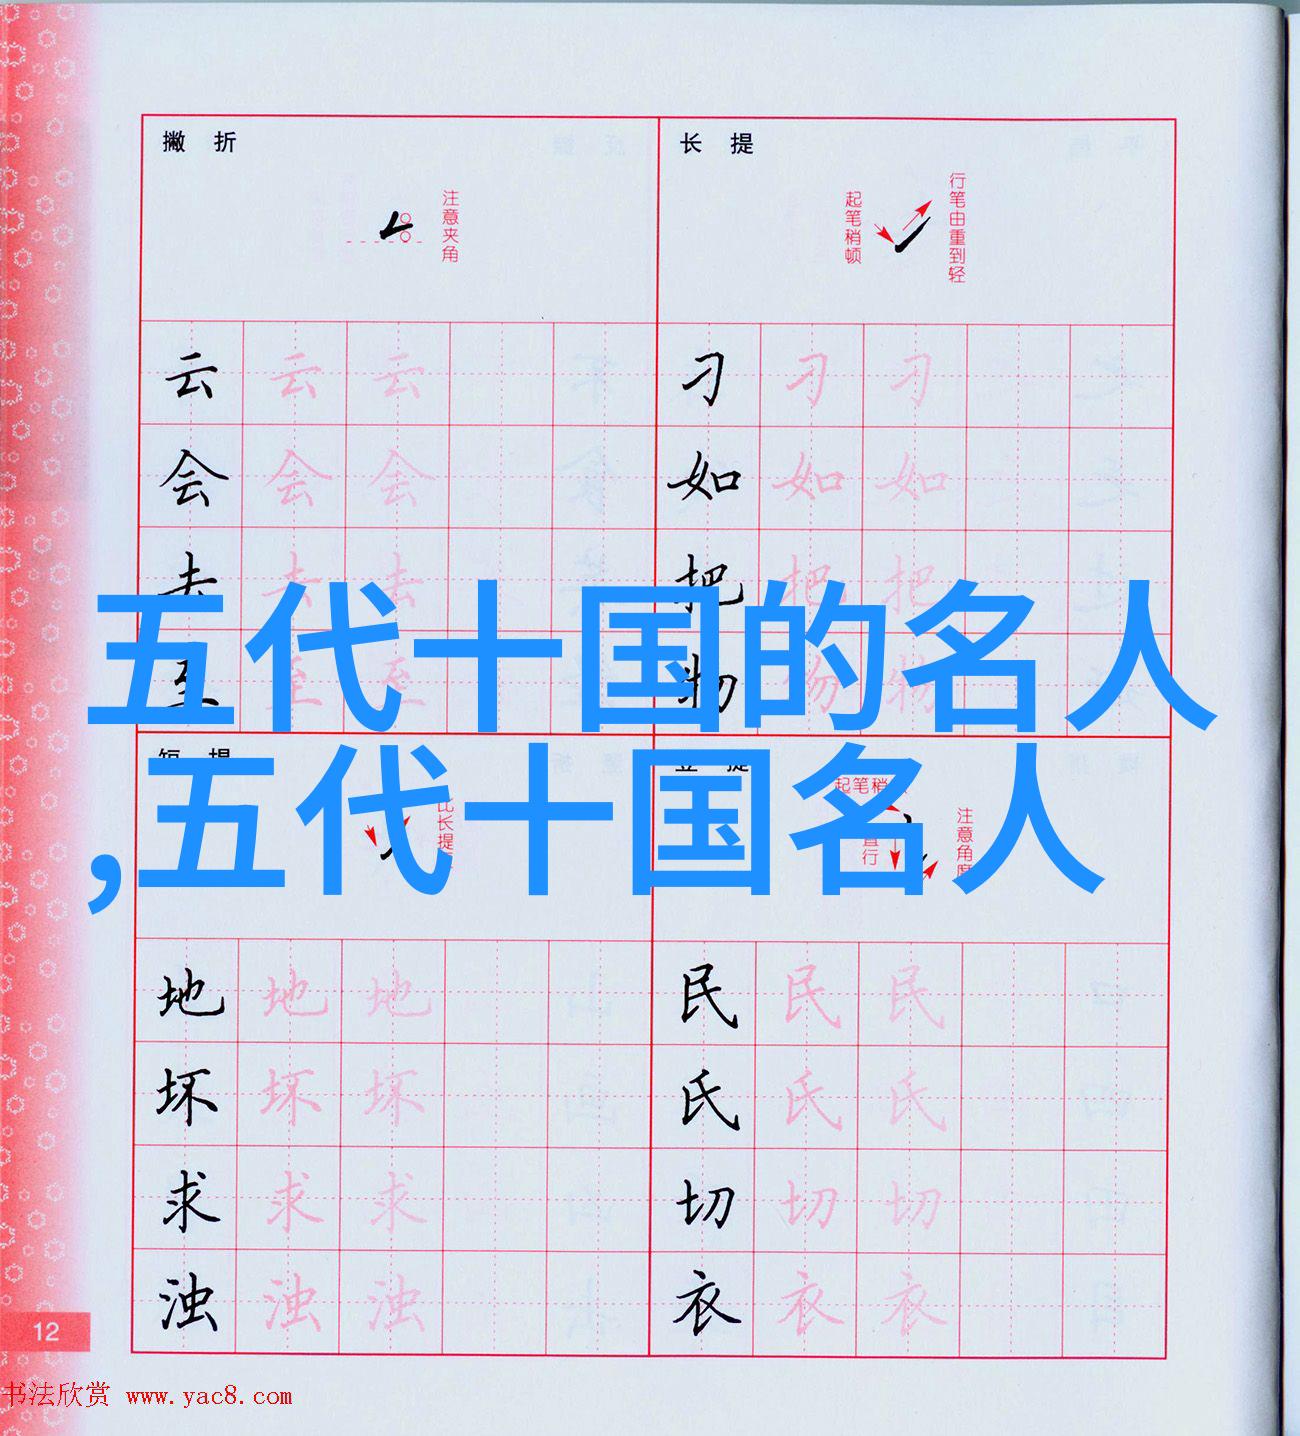 撇 折
注意夹角
云 云 云
会 会 会
去 去 去
至 至 至
长 提
起笔稍顿
行笔由重到轻
刁 刁 刁
如 如 如
把 把 把
物 物 物
五代十国的名人
,五代十国名人
短 提
比长提
地 地 地
坏 坏 坏
求 求 求
浊 浊 浊
提
起笔稍
直行
注意角度
民 民 民
氏 氏 氏
切 切 切
衣 衣 衣
12
书法欣赏 www.yac8.com